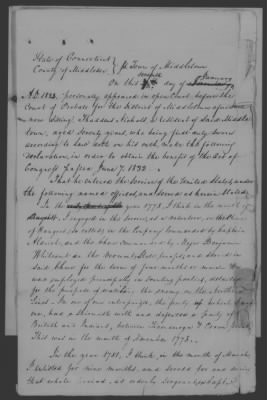 State of Connecticut
County of Middlesex } ss Town of Middletown
On this day of January
A.D. 1833, personally appeared in open Court, before the
Court of Probate for the District of Middletown
now sitting, Thaddeus Nichols a resident of said Middle-
town, aged seventy years, who being first duly sworn
according to law, doth on his oath, make the following
declaration, in order to obtain the benefit of the Act of
Congress passed June 7, 1832.
That he entered the service of the United States, under
the following named officers, and served as herein stated.
In the year 1778, I think in the month of
August, I engaged in the service, as a volunteer, in
of Rangers, so called, in the Company commanded by Captain
Aldrich, and the whole commanded by Major Benjamin
Whitcomb on the and served in
said for the term of four months or more. We
was employed principally in scouting parties,
for the purpose of the enemy on the Northern
Lines. In one of our the party of which I was
one, had a skirmish with and defeated a party of
British and Indians, between Ticonderoga & Crown Point,
This was in the month of November 1778.
In the year 1781, I think, in the month of March
I enlisted for nine months, and served for and during
that whole period, as orderly Sergeant,